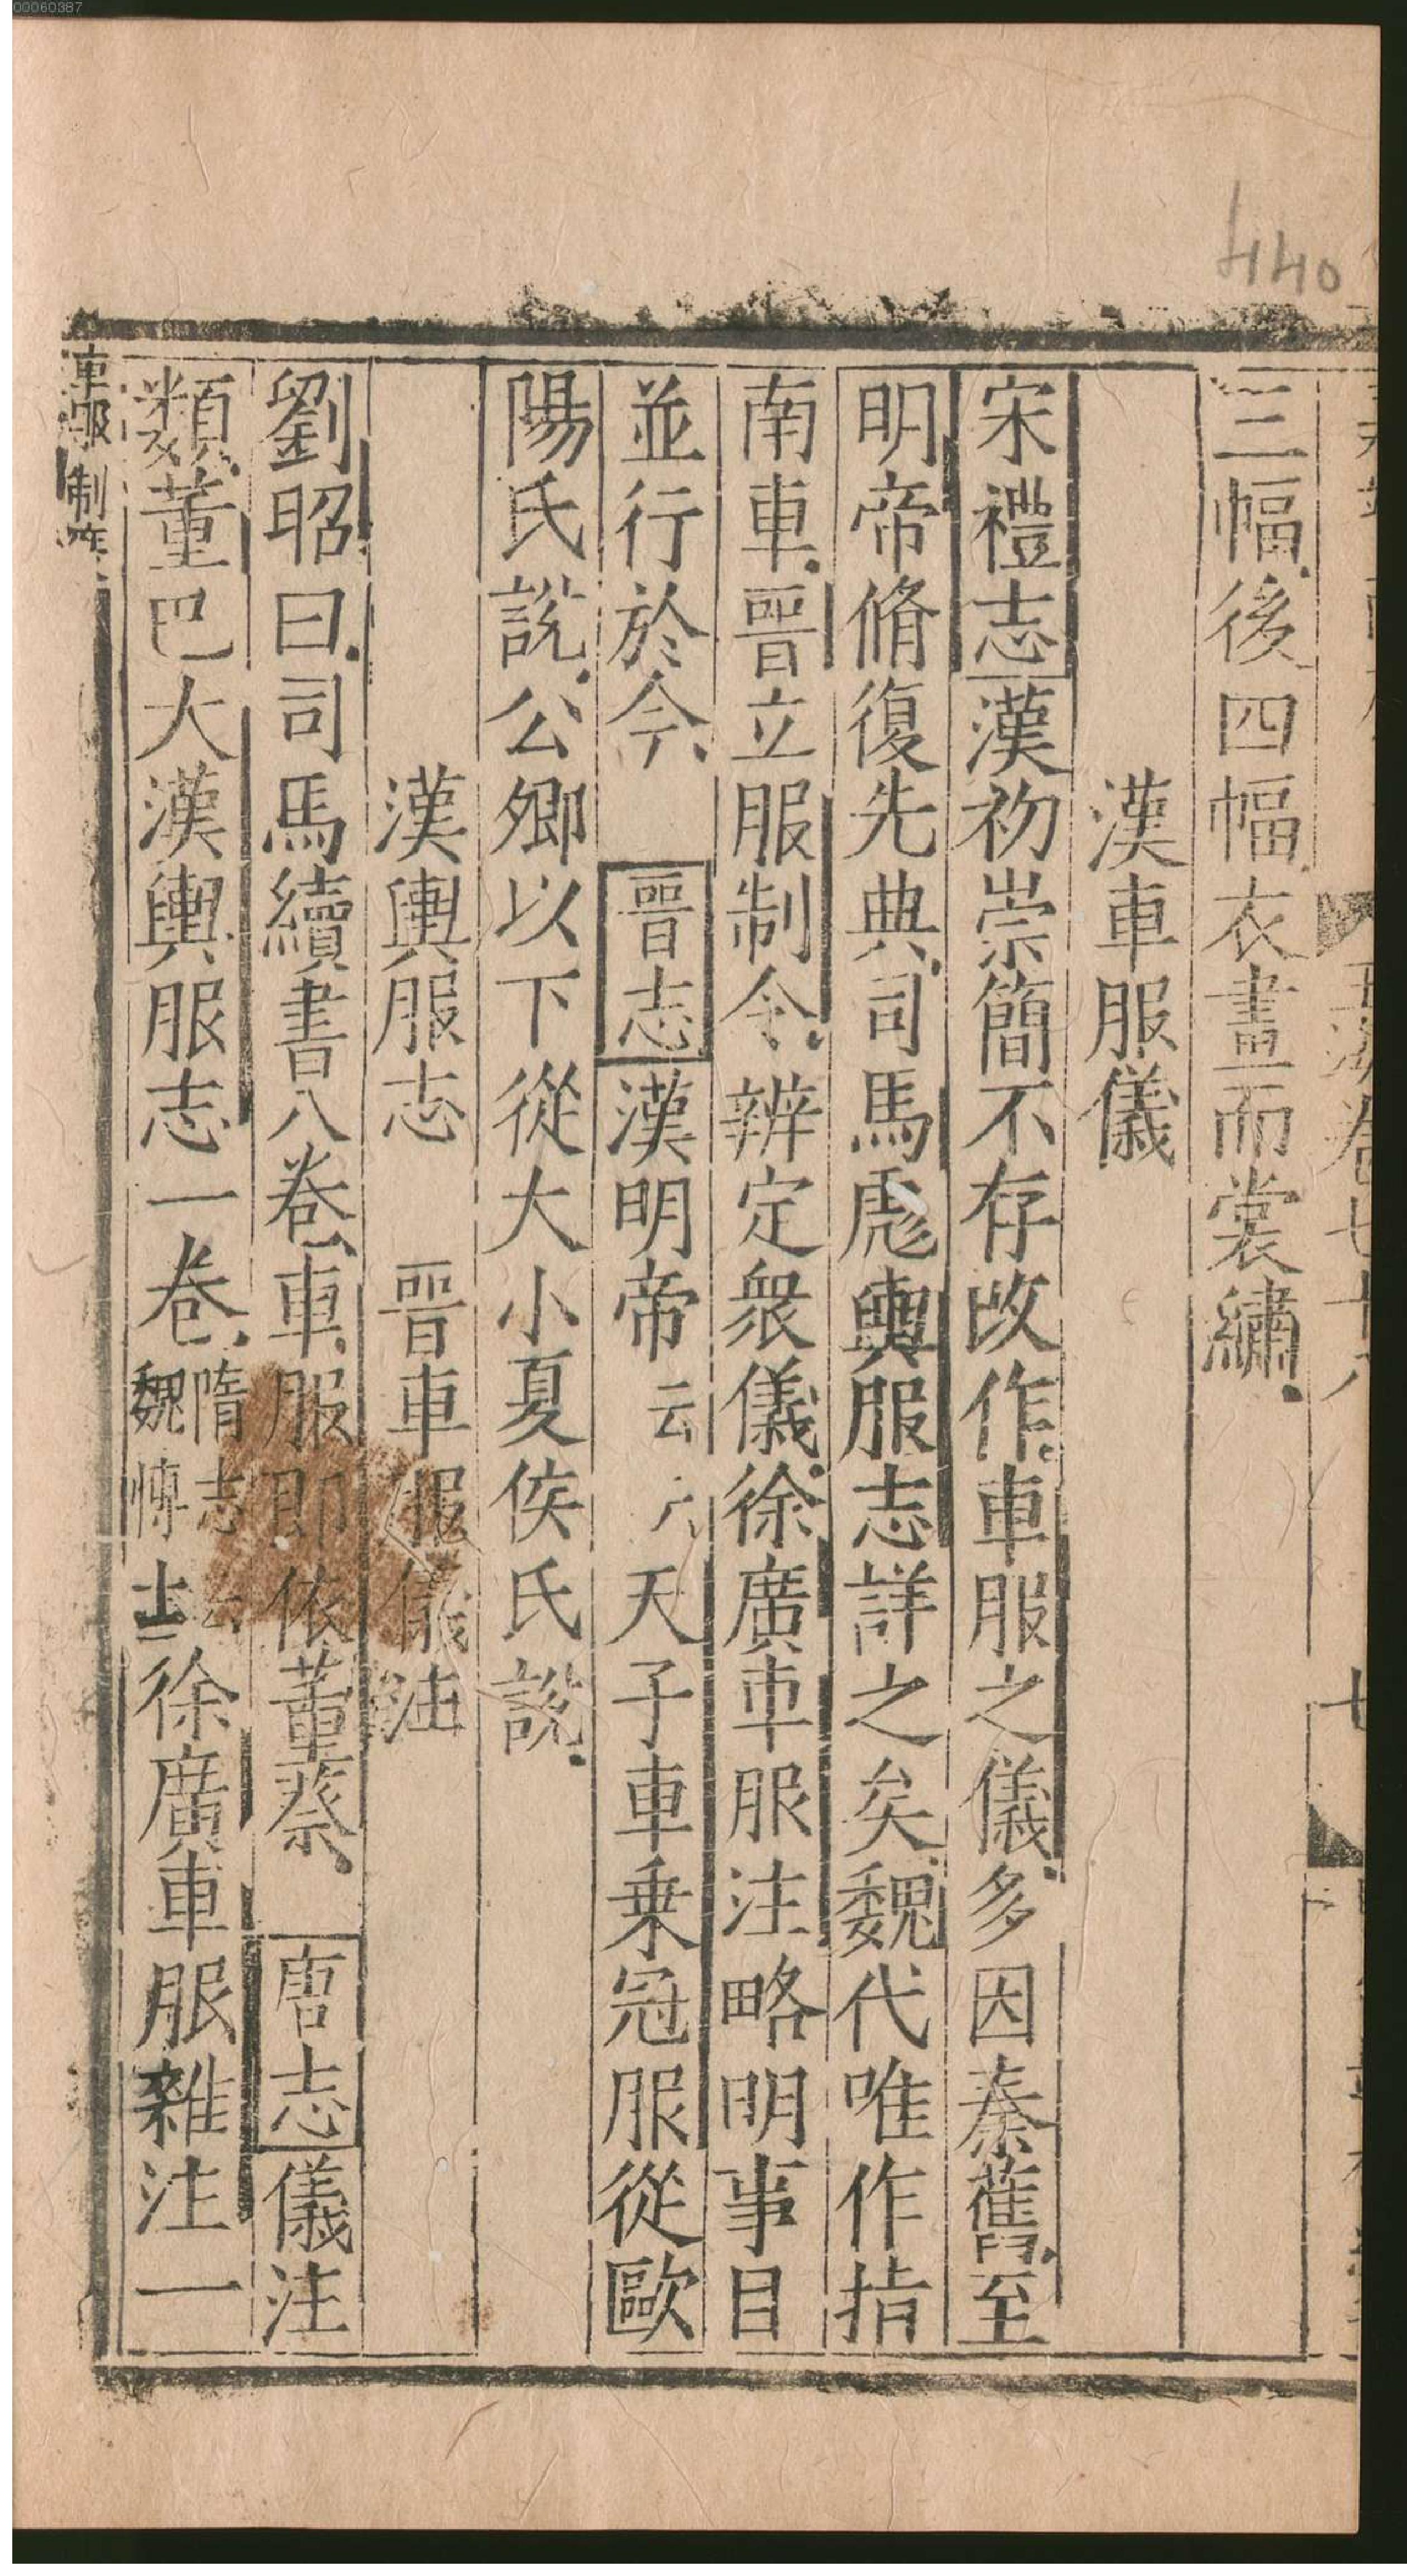 00060387
440
三幅後四幅衣畫而裳繡
漢車服儀
宋禮志漢初崇簡不存改作車服之儀多因秦舊至
明帝脩復先典司馬彪輿服志詳之矣魏代唯作指
南車晉立服制令辨定衆儀徐廣車服注略明事目
並行於今 晉志漢明帝云六天子車乗冠服從歐
陽氏說公卿以下從大小夏侯氏說
漢輿服志 晉車服儀注
劉昭曰司馬續書八卷車服即依董蔡 唐志儀注
類董巴大漢輿服志一卷隋志云魏博士徐廣車服雜注一
車服制度